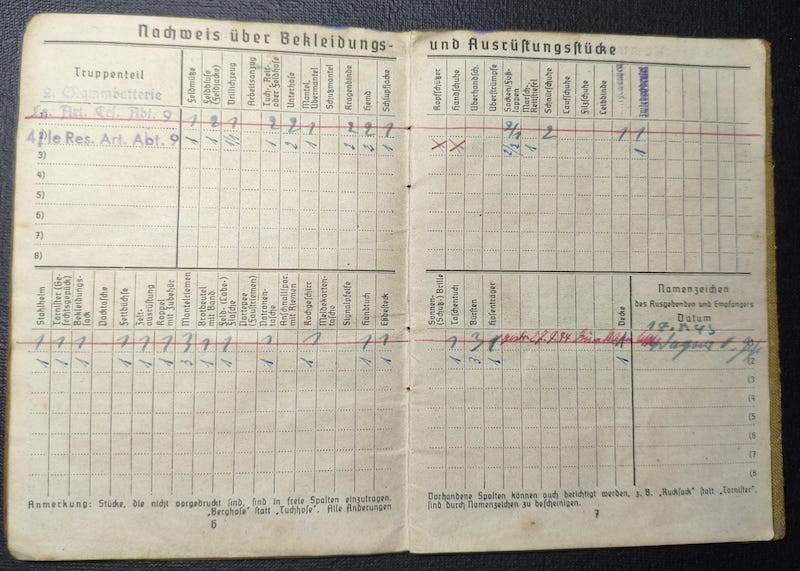 Nachweis über Bekleidungs-
Truppenteil
Feldmütze
Feldbluse
(Feldjacke)
Drillichzeug
Arbeitsanzug
Tuch-, Reit-
oder Feldhose
Unterhose
Mantel,
Übermantel
Schutzmantel
Kragenbinde
Hemd
Schlupfjacke
2. Stammbatterie
Art. Abt. 9
1 2 1 2 2 1 2 2 1
4. Res. Art. Abt. 9
1 1 1/1 1 2 1 2 2 1
3)
4)
5)
6)
7)
8)
Stahlhelm
Tornister (Ge-
fechtsgepäck)
Bekleidungs-
sack
Packtasche
Fettbüchse
Zelt-
ausrüstung
Koppel
mit Zubehör
Mantelriemen
Brotbeutel
mit Band
Feld- (Labe-)
Flasche
Portepee
(Faustriemen)
Patronen-
tasche
Anschnallspor.
mit Riemen
Kochgeschirr
Meldekarten-
tasche
Signalpfeife
Handtuch
Eßbesteck
1 1 1 1 1 1 3 1 1 1 1 1 1
1 1 1 1 1 1 3 1 1 1 1 1 1
Anmerkung: Stücke, die nicht vorgedruckt sind, sind in freie Spalten einzutragen.
„Berghose" statt „Tuchhose". Alle Änderungen
6
und Ausrüstungsstücke
Kopfschützer
Handschuhe
Überhandsch.
Überstrümpfe
Socken/Fuß-
lappen
Marsch-,
Reitstiefel
Schnürschuhe
Laufschuhe
Filzschuhe
Leibbinde
2/1 2 1 1
x x 2/2 1 1
Sonnen-
(Schutz-) Brille
Taschentuch
Bürsten
Hosenträger
Decke
Namenzeichen
des Ausgebenden und Empfängers
Datum
1 3 1
1 3 1 1
(2
(3
(4
(5
(6
(7
(8
Vorhandene Spalten können auch berichtigt werden, z. B. „Rucksack" statt „Tornister".
sind durch Namenzeichen zu bescheinigen.
7